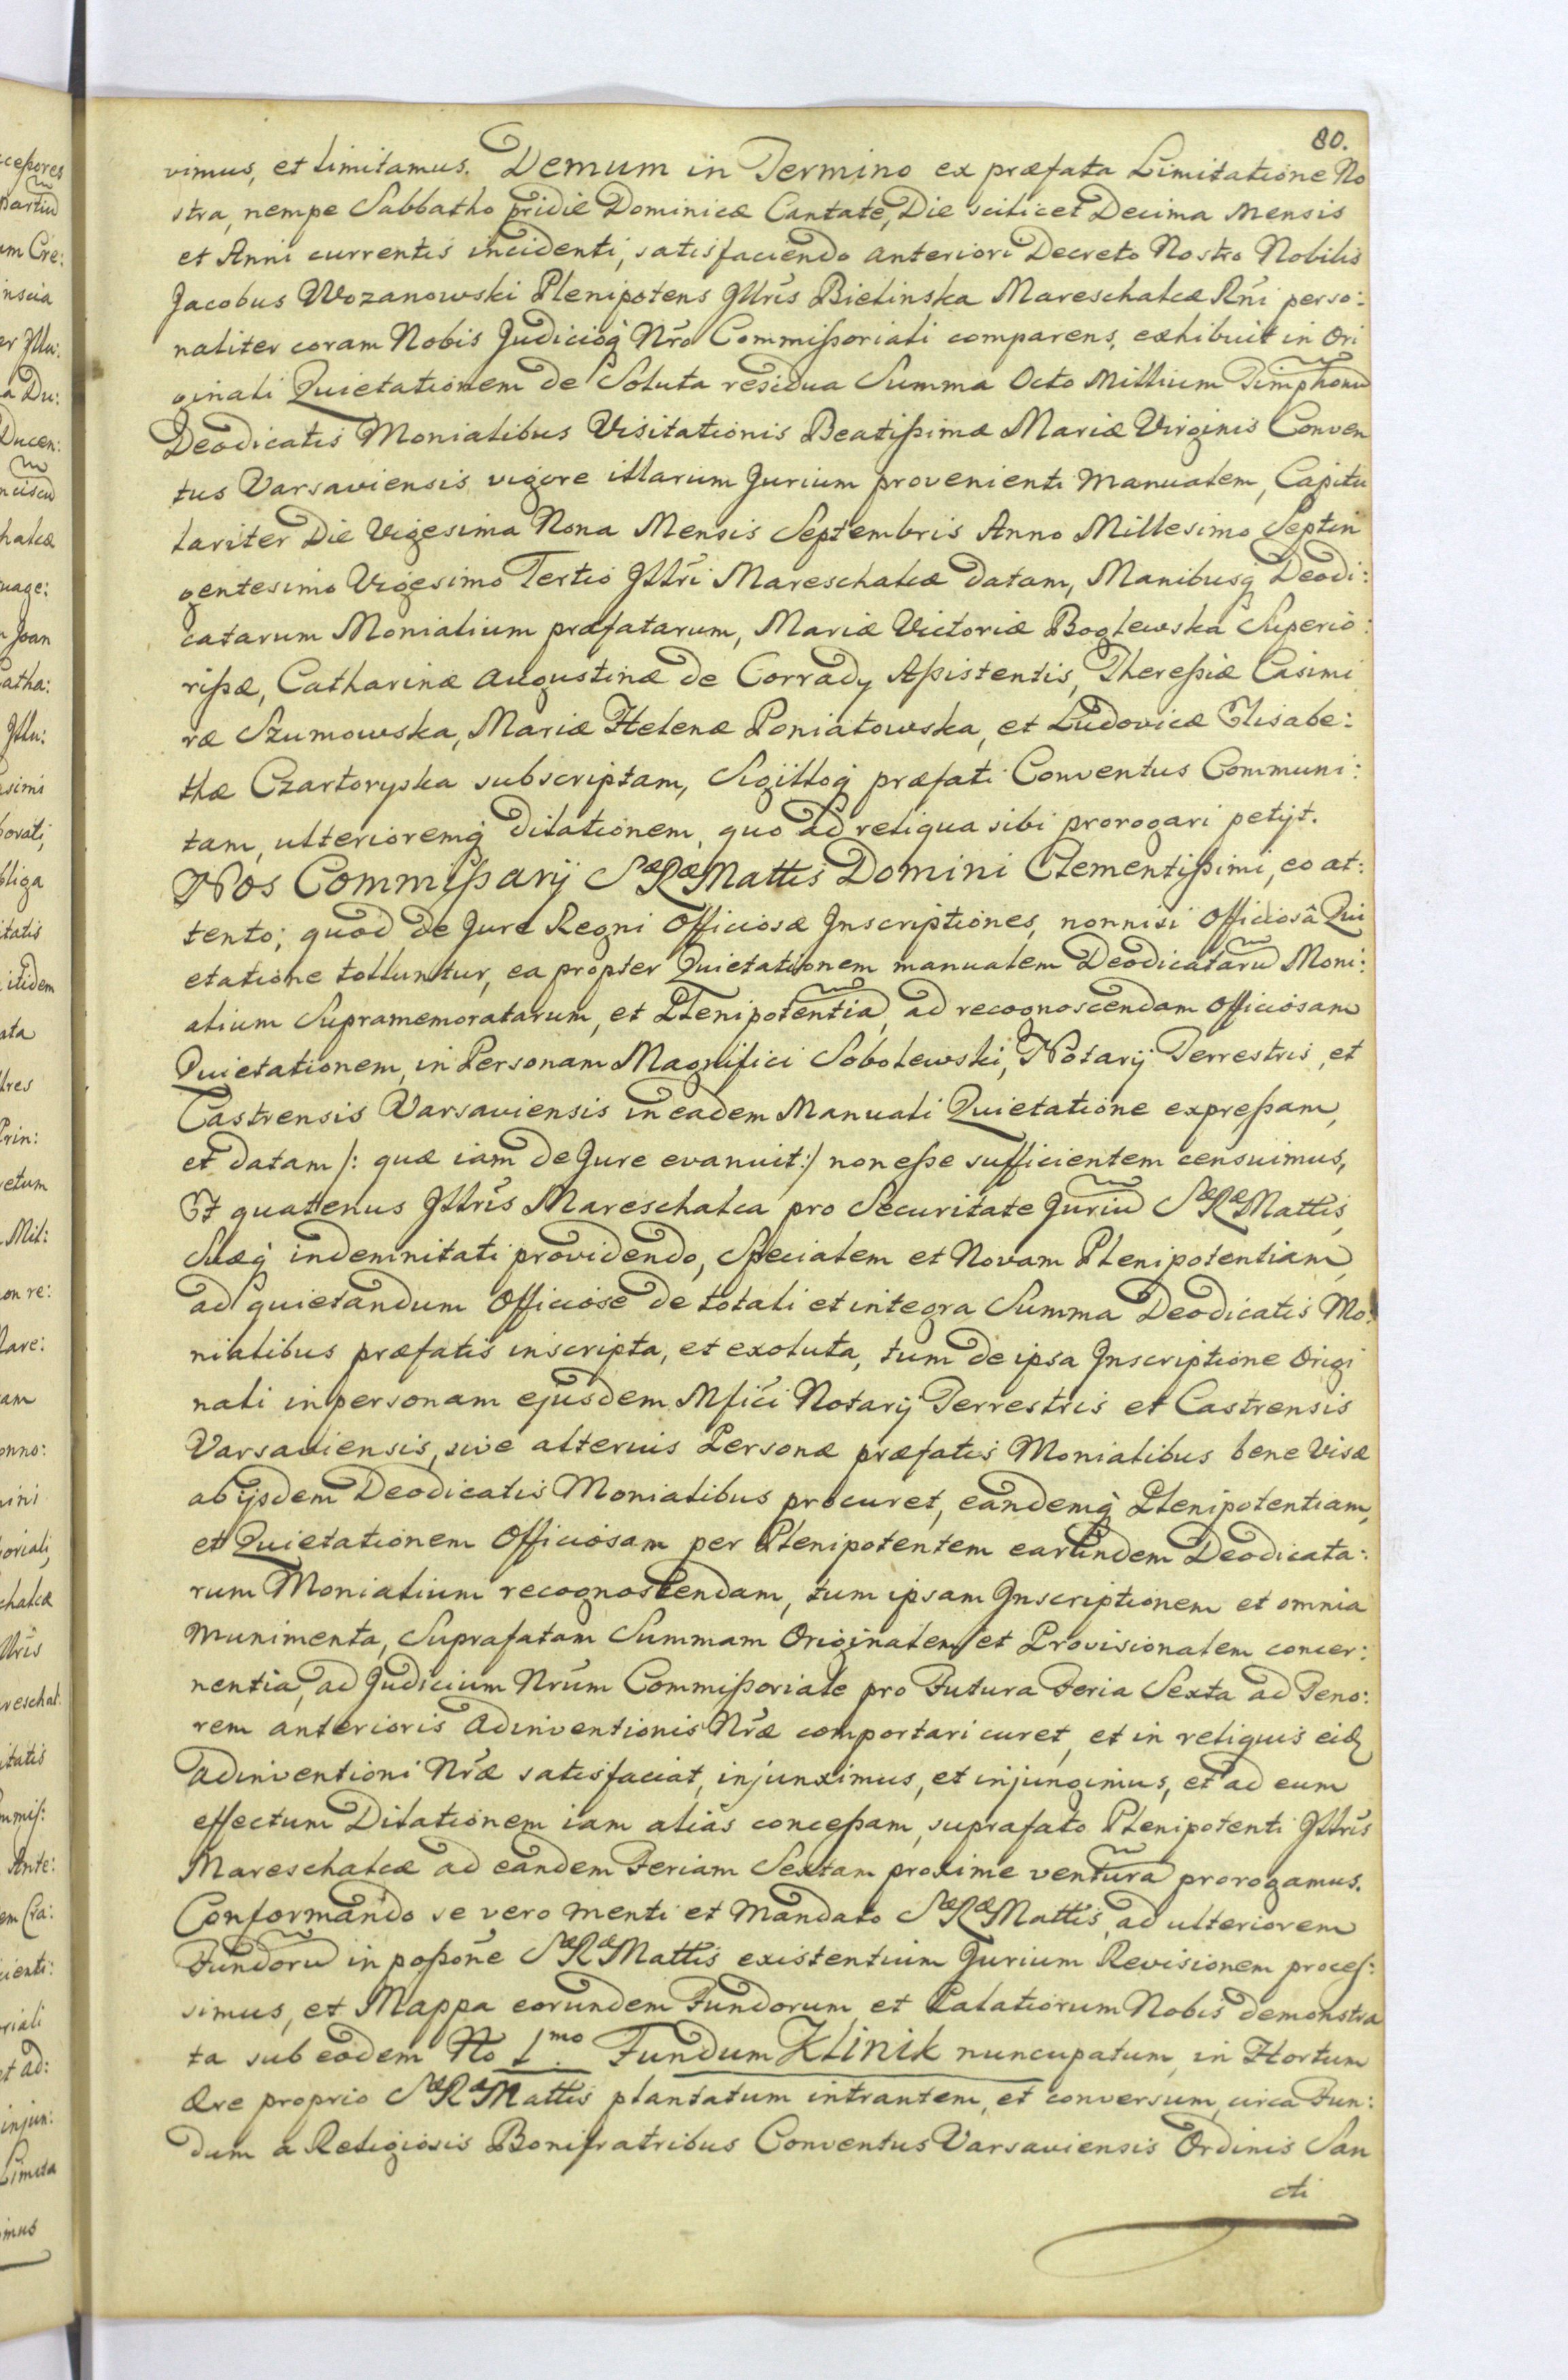 80.
vimus, et limitamus. Demum in Termino ex præfata Limitatione No
stra, nempe Sabbatho pridie Dominicæ Cantate, Die scilicet Decima Mensis
et Anni currentis incidenti, satisfaciendo anteriori Decreto Nostro Nobilis
Jacobus Wozanowski Plenipotens Jllrĩs Bielinska Mareschalcæ Rñi perso:
naliter coram Nobis Judicioq̃ Nr̃o Commißoriali comparens, exhibuit in Ori
ginali Quietationem de Soluta residua Summa Octo Millium Timphonũ
Deodicatis Monialibus Visitationis Beatißimæ Mariæ Virginis Conven
tus Varsaviensis vigore illarum Jurium provenienti Manualem, Capitu
lariter Die Vigesima Nona Mensis Septembris Anno Millesimo Septin
gentesimo Vigesimo Tertio Jllr̃i Mareschalcæ datam, Manibusq̃ Deodi:
catarum Monialium præfatarum, Mariæ Victoriæ Boglewska Superio:
rißæ, Catharinæ Augustinæ de Corrady Aßistentis, Thereßiæ Casimi
ræ Szumowska, Mariæ Helenæ Poniatowska, et Ludovicæ Elisabe:
thæ Czartoryska subscriptam, Sigilloq̃ præfati Conventus Communi:
tam, ulterioremq̃ dilationem, quo ad reliqua sibi prorogari petijt.
Nos Commißarij Sæ Ræ Mattis Domini Clementißimi, eo at:
tento; quod de Jure Regni Officiosæ Inscriptiones, nonnisi Officiosâ Qui
etatione tolluntur, ea propter Quietationem manualem Deodicatarũ Moni:
alium Supramemoratarum, et Plenipotentiã, ad recognoscendam Officiosam
Quietationem, in Personam Magnifici Sobolewski, Notarij Terrestris, et
Castrensis Varsaviensis in eadem Manuali Quietatione expreßam,
et datam /: quæ iam de Jure evanuit :/ non eße sufficientem censuimus,
Et quatenus Jllrĩs Mareschalca pro Securitate Juriũ Sæ Ræ Mattis,
Suæq̃ indemnitati providendo, Specialem et Novam Plenipotentiam,
ad quietandum Officiose de totali et integra Summa Deodicatis Mo:
nialibus præfatis inscripta, et exoluta, tum de ipsa Inscriptione Origi
nali in personam ejusdem Mfĩci Notarij Terrestris et Castrensis
Varsaviensis, sive alterius Personæ præfatis Monialibus bene Visæ
ab ijsdem Deodicatis Monialibus procuret, eandemq̃ Plenipotentiam,
et Quietationem Officiosam per Plenipotentem earundem Deodicata:
rum Monialium recognoscendam, tum ipsam Inscriptionem et omnia
Munimenta, Suprafatam Summam Originalem et Provisionalem concer:
nentia, ad Judicium Nrũm Commißoriale pro Futura Feria Sexta ad Teno:
rem anterioris Adinventionis Nr̃æ comportari curet, et in reliquis eid
Adinventioni Nr̃æ satisfaciat, injunximus, et injungimus, et ad eum
effectum Dilationem iam aliàs conceßam, suprafato Plenipotenti Jllrĩs
Mareschalcæ ad eandem Feriam Sextam proxime venturã prorogamus.
Conformando se vero menti et Mandato Sæ Ræ Mattis, ad ulteriorem
Fundorũ in poßoñe Sæ Ræ Mattis existentium Jurium Revisionem proceß:
simus, et Mappa eorundem Fundorum et Palatiorum Nobis demonstra
ta sub eodem No 1.mo Fundum Klinik nuncupatum, in Hortum
Ære proprio Sæ Ræ Mattis plantatum intrantem, et conversum, circa Fun:
dum a Religiosis Bonifratribus Conventus Varsaviensis Ordinis San
cti